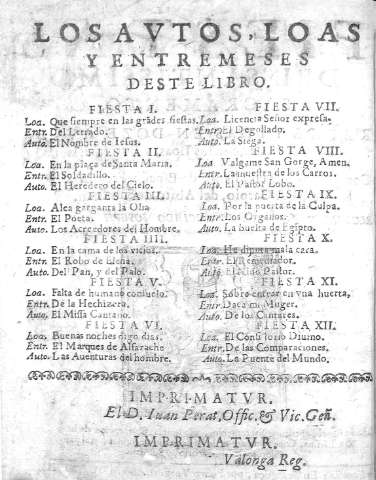 LOS AVTOS, LOAS
Y ENTREMESES
DESTE LIBRO.
FIESTA I.
Loa. Que siempre en las grãdes fiestas.
Entr. Del Letrado.
Auto. El Nombre de Iesus.
FIESTA II.
Loa. En la plaça de Santa Maria.
Entr. El Soldadillo.
Auto. El Heredero del Cielo.
FIESTA III.
Loa. Alça garganta la Olla
Entr. El Poeta.
Auto. Los Acreedores del Hombre.
FIESTA IIII.
Loa. En la cama de los vicios.
Entr. El Robo de Elena.
Auto. Del Pan, y del Palo.
FIESTA V.
Loa. Falta de humano consuelo.
Entr. De la Hechizera.
Auto. El Missa Cantano.
FIESTA VI.
Loa. Buenas noches digo dias.
Entr. El Marques de Alfarache
Auto. Las Auenturas del hombre.
FIESTA VII.
Loa. Licencia Señor expressa.
Entr. El Degollado.
Auto. La Siega.
FIESTA VIII.
Loa. Valgame San Gorge, Amen.
Entr. La muestra de los Carros.
Auto. El Pastor Lobo.
FIESTA IX.
Loa. Por la puerta de la Culpa.
Entr. Los Organos.
Auto. La buelta de Egipto.
FIESTA X.
Loa. He mala cara.
Entr. El Remediador.
Auto. El Niño Pastor.
FIESTA XI.
Loa. Sobre entrar en vna huerta,
Entr. Daca mi Muger.
Auto. De los Cantares.
FIESTA XII.
Loa. El Consistorio Diuino.
Entr. De las Comparaciones.
Auto. La Puente del Mundo.
IMPRIMATVR.
El D. Iuan Perat, Offic. & Vic. Gen̄.
IMPRIMATVR.
Valonga Reg.